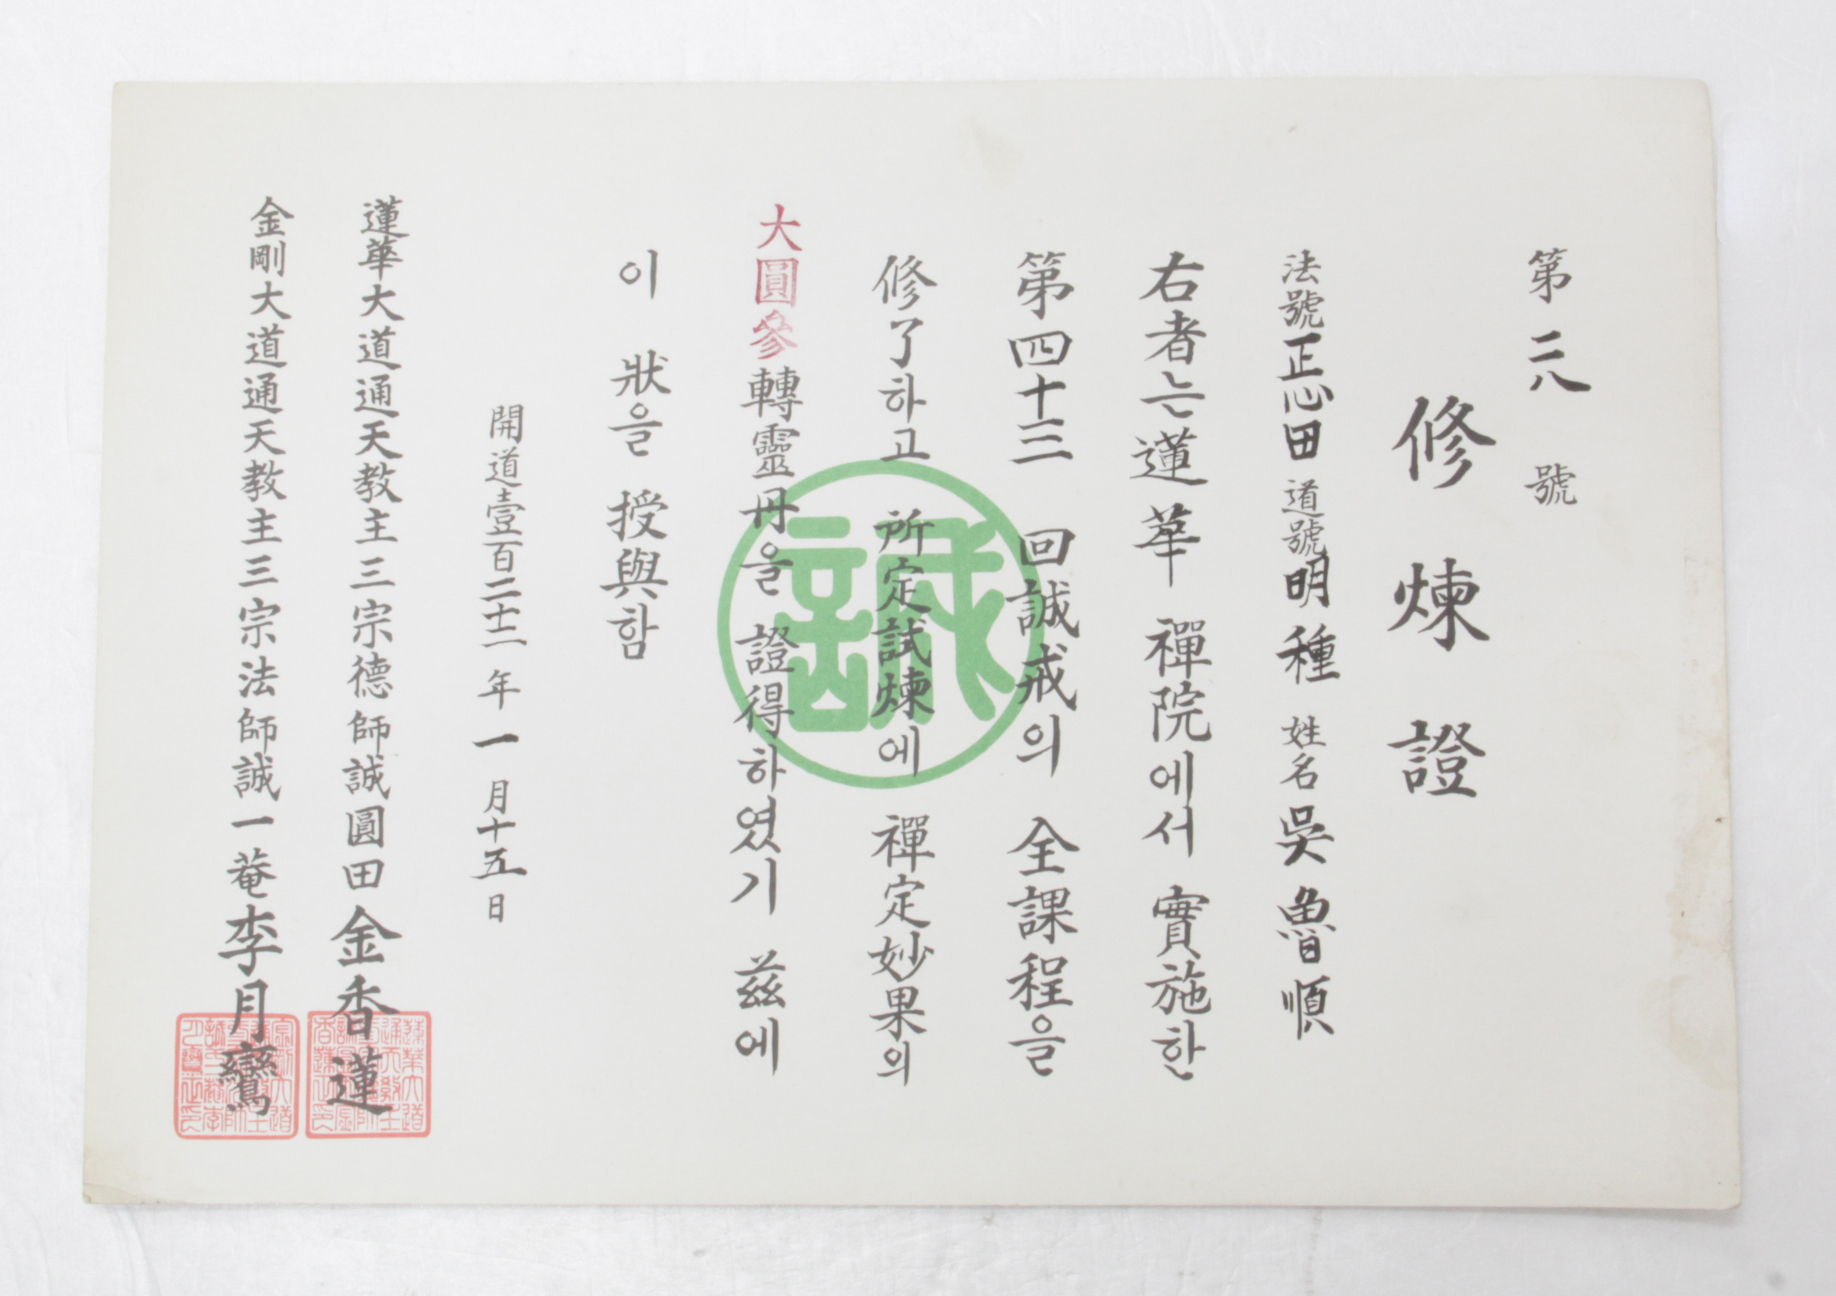 第二八號
修煉證
法號 正心田 道號 明種 姓名 吳魯順
右者는 蓮華禪院에서 實施한
第四十三回 誠戒의 全課程을
修了하고 所定試煉에 禪定妙果의
大圓參轉靈丹을 證得하였기 茲에
이 狀을 授與함
開道壹百二十二年 一月十五日
蓮華大道通天教主三宗德師誠圓田 金香蓮
金剛大道通天教主三宗法師誠一菴 李月鸞
誠